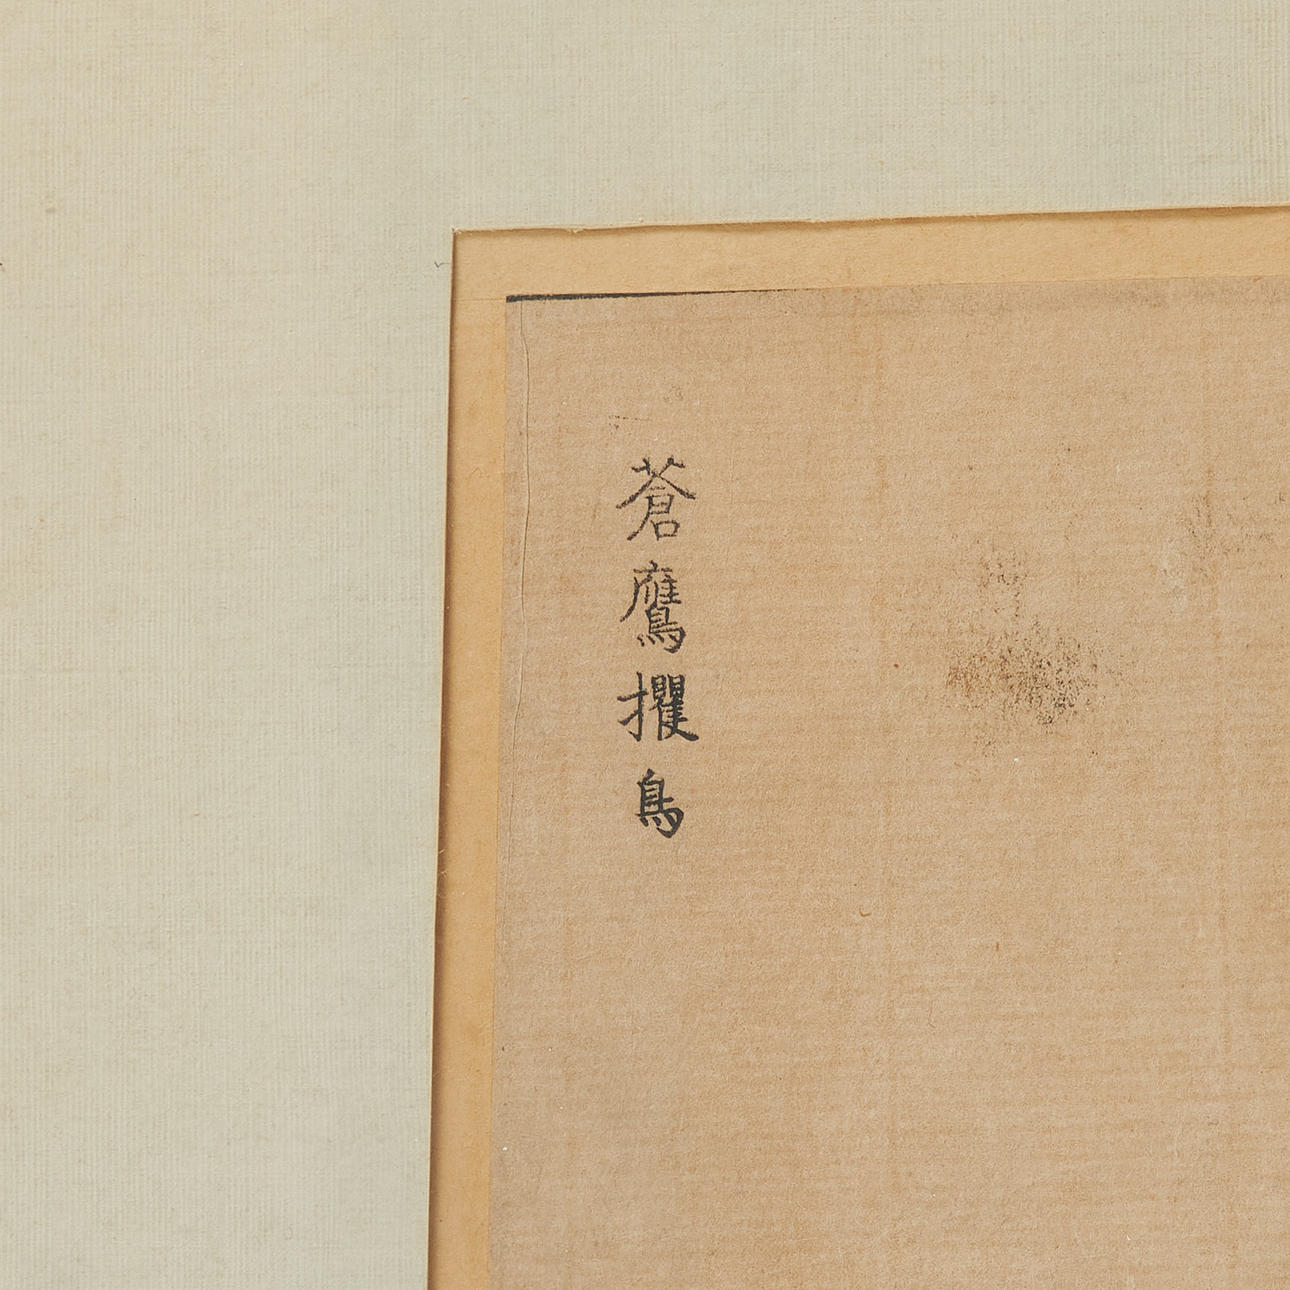 蒼鷹攫鳥